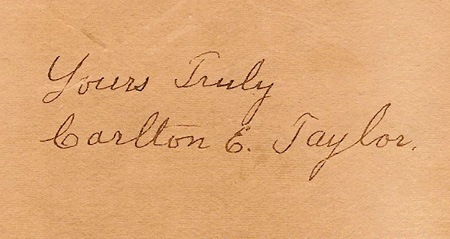 Yours Truly
Carlton E. Taylor.